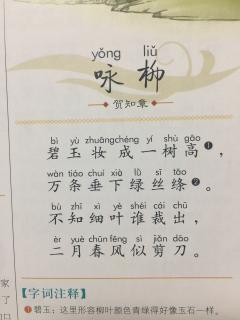 yǒng liǔ
咏柳
贺知章
bì yù zhuāngchéng yí shù gāo
碧玉妆成一树高❶，
wàn tiáo chuí xià lǜ sī tāo
万条垂下绿丝绦❷。
bù zhī xì yè shéi cái chū
不知细叶谁裁出，
èr yuè chūn fēng sì jiǎn dāo
二月春风似剪刀。
【字词注释】
❶碧玉：这里形容柳叶颜色青绿得好像玉石一样。
家
了